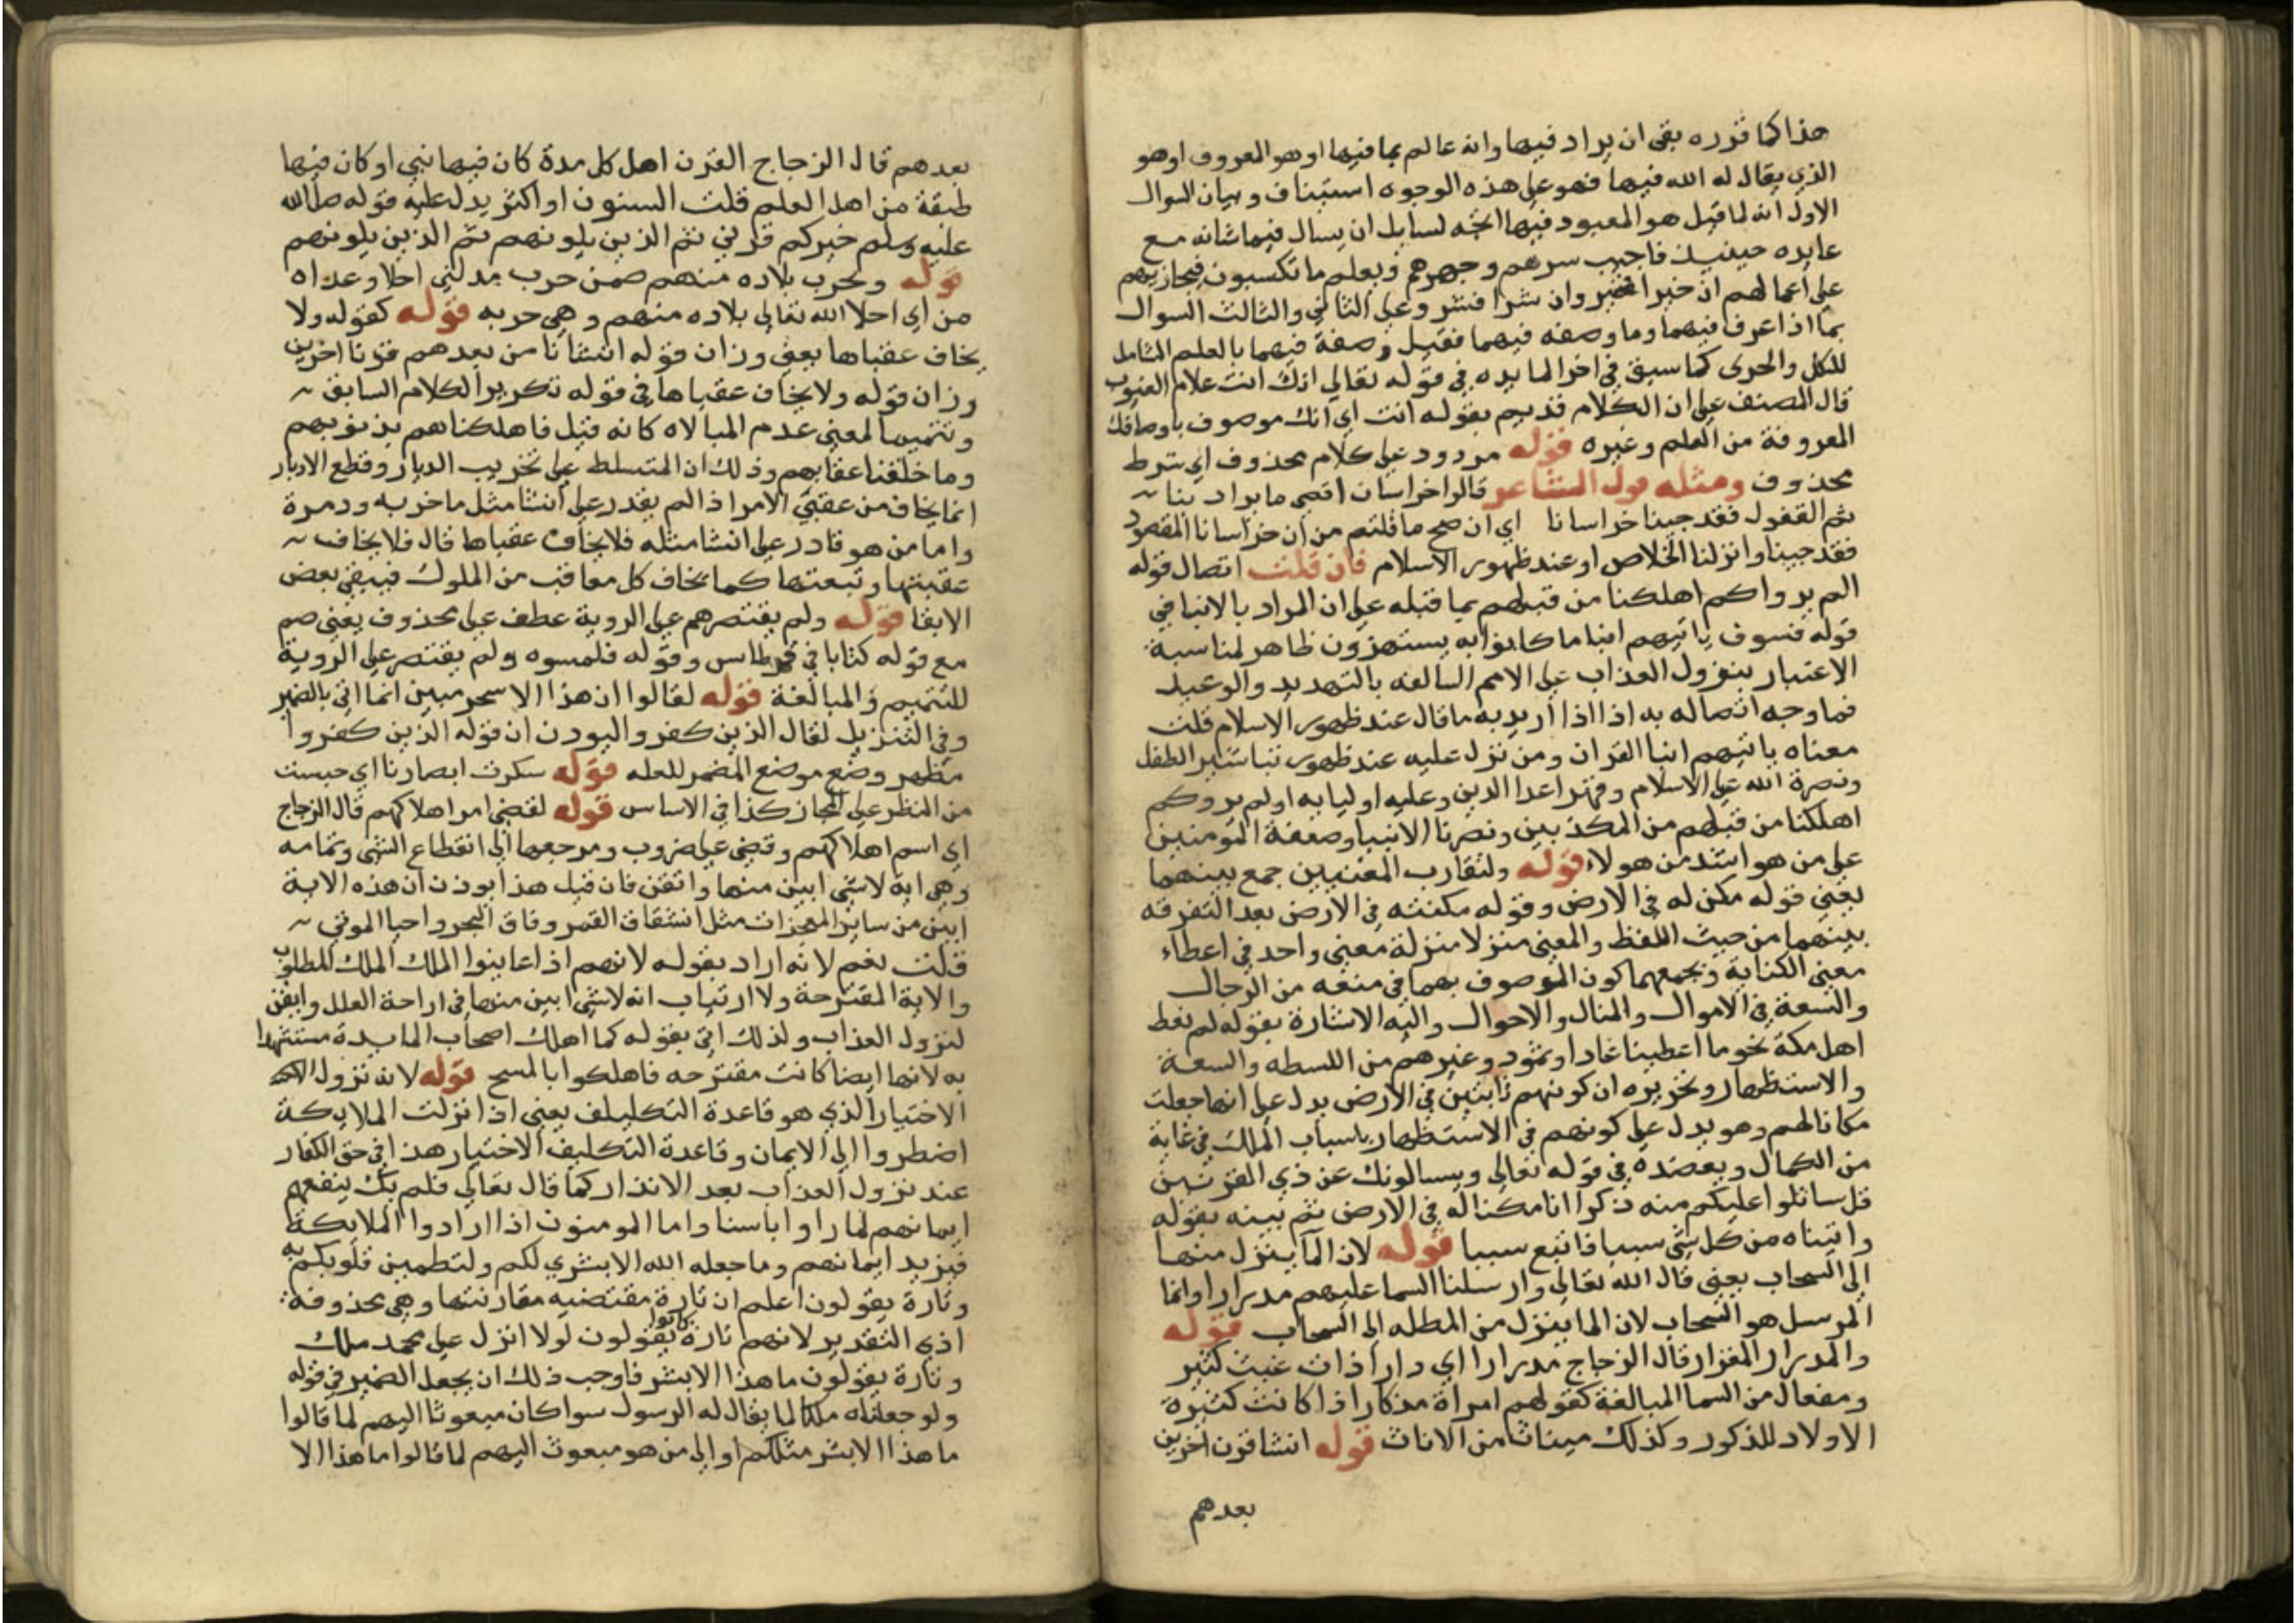 هذا كما قرره بقي ان يراد فيها وانه عالم بما فيها او هو المعروف او هو
الذي يقال له الله فيها فهو على هذه الوجوه استيناف وبيان السوال
الاول انه لما قيل هو المعبود فيها اتجه لسايل ان يسال فيما شانه مع
عابده حينيذ فاجيب سرهم وجهرهم ويعلم ما تكسبون فيجازيهم
على اعمالهم ان خيرا فخير وان شرا فشر وعلى الثاني والثالث السوال
بما اذا عرف فيهما وما وصفه فيهما فقيل وصفه فيهما بالعلم الشامل
للكل والجزي كما سبق في اخر المايده في قوله تعالى انك انت علام الغيوب
قال المصنف على ان الكلام قديم بقوله انت اي انك موصوف باوصافك
المعروفة من العلم وغيره قوله مردود على كلام محذوف اي شرط
محذوف ومثله قول الشاعر قالوا خراسان اقصى ما يراد بنا
ثم القفول فقد جينا خراسانا اي ان صح ما قلتم من ان خراسانا المقصود
فقد جينا وانزلنا الخلاص او عند ظهور الاسلام فان قلت اتصال قوله
الم يروا كم اهلكنا من قبلهم بما قبله على ان المراد بالانبا في
قوله فسوف ياتيهم انبا ما كانوا به يستهزون ظاهر لمناسبة
الاعتبار بنزول العذاب على الامم السالفه بالتهديد والوعيد
فما وجه اتصاله به اذا اريد به ما قال عند ظهور الاسلام قلت
معناه ياتيهم انبا القران ومن نزل عليه عند ظهور تباشير الظفر
ونصرة الله على الاسلام وقهر اعدا الدين وعليه اوليا به اولم يروكم
اهلكنا من قبلهم من المكذبين ونصرنا الانبيا وضعفة المومنين
على من هو اشد من هولاء قوله ولتقارب المعنيين جمع بينهما
يعني قوله مكن له في الارض وقوله مكنته في الارض بعد التفرقه
بينهما من حيث اللفظ والمعنى منزلا منزلة معنى واحد في اعطاء
معنى الكناية ويجمعهما كون الموصوف بهما في منعه من الرجال
والسعة في الاموال والمنال والاحوال واليه الاشارة بقوله لم نعط
اهل مكة نحو ما اعطينا عادا وثمود وغيرهم من البسطه والسعة
والاستظهار وتحريره ان كونهم ثابتين في الارض يدل على انها جعلت
مكانا لهم وهو يدل على كونهم في الاستظهار باسباب الملك في غاية
من الكمال ويعضده في قوله تعالى ويسالونك عن ذي القرنين
قل ساتلوا عليكم منه ذكرا انا مكنا له في الارض ثم بينه بقوله
واتيناه من كل شي سببا فاتبع سببا قوله لان الما ينزل منها
الى السحاب يعني قال الله تعالى وارسلنا السما عليهم مدرارا وانما
المرسل هو السحاب لان الما ينزل من المظله الى السحاب قوله
والمدرار المغزار قال الزجاج مدرارا اي دارا ذات غيث كثير
ومفعال من السما المبالغة كقولهم امراة مذكار اذا كانت كثيرة
الاولاد للذكور وكذلك ميناث من الاناث قوله انشا قرن اخرين
بعدهم
بعدهم قال الزجاج القرن اهل كل مدة كان فيها نبي او كان فيها
طبقة من اهل العلم قلت السنون او اكثر يدل عليه قوله صلى الله
عليه وسلم خيركم قرني ثم الذين يلونهم ثم الذين يلونهم
قوله وخرب بلاده منهم ضمن خرب معنى اخلا وعداه
من اي اخلا الله تعالى بلاده منهم وهي خربه قوله كقوله ولا
يخاف عقباها يعني وزان قوله انشانا من بعدهم قرنا اخرين
وزان قوله ولا يخاف عقباها في قوله تكريرا لكلام السابق
وتتميما لمعنى عدم المبالاه كانه قيل فاهلكناهم بذنوبهم
وما خلفنا عقابهم وذلك ان المتسلط على تخريب الديار وقطع الادبار
انما يخاف من عقبى الامر اذا لم يقدر على انشا مثل ما خربه ودمره
واما من هو قادر على انشا مثله فلا يخاف عقباها قال فلا يخاف
عقبتها وتبعتها كما يخاف كل معاقب من الملوك فيبقي بعض
الابقا قوله ولم يقتصرهم على الروية عطف على محذوف يعني ضم
مع قوله كتابا في قرطاس وقوله فلمسوه ولم يقتصر على الروية
للتتميم والمبالغة قوله لقالوا ان هذا الا سحر مبين انما اتى بالضمير
وفي التنزيل لقال الذين كفروا ليوذن ان قوله الذين كفروا
مظهر وضع موضع المضمر للعله قوله سكرت ابصارنا اي حبست
من النظر على المجاز كذا في الاساس قوله لقضي امر اهلاكهم قال الزجاج
اي اسم اهلاكهم وقضي على ضروب ومرجعها الى انقطاع الشي وتمامه
وهي اية لا شي ابين منها واتقن فان قيل هذا يوذن ان هذه الاية
ابين من ساير المعجزات مثل انشقاق القمر وفلق البحر واحيا الموتى
قلت نعم لانه اراد بقوله لانهم اذا عاينوا الملك الملك المطلوب
والاية المقترحة ولا ارتياب انه لا شي ابين منها في ازاحة العلل وايقن
لنزول العذاب ولذلك اتى بقوله كما اهلك اصحاب المايدة مستشهدا
به لانها ايضا كانت مقترحه فاهلكوا بالمسخ قوله لانه نزول
الاختيار الذي هو قاعدة التكليف يعني اذا نزلت الملايكة
اضطروا الى الايمان وقاعدة التكليف الاختيار هذا في حق الكفار
عند نزول العذاب بعد الانذار كما قال تعالى فلم يك ينفعهم
ايمانهم لما راوا باسنا واما المومنون اذا ارادوا الملايكة
فيزيد ايمانهم وما جعله الله الا بشرى لكم ولتطمين قلوبكم به
وتارة يقولون اعلم ان تارة مقتضيه مقارنتها وهي محذوفة
اذ التقدير لانهم كانوا تارة يقولون لولا انزل على محمد ملك
وتارة يقولون ما هذا الا بشر فاوجب ذلك ان يجعل الضمير في قوله
ولو جعلناه ملكا لما يقال له الرسول سوا كان مبعوثا اليهم لما قالوا
ما هذا الا بشر مثلكم او الى من هو مبعوث اليهم لما قالوا ما هذا الا